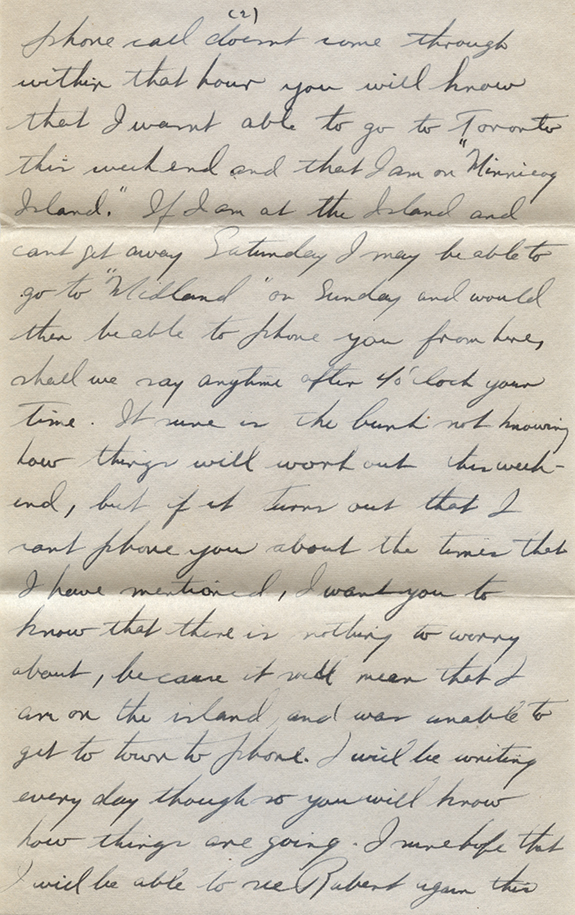 (2)
phone call doesnt come through
within that hour you will know
that I wasnt able to go to Toronto
this weekend and that I am on "Minnicog
Island." If I am at the Island and
cant get away Saturday I may be able to
go to "Midland" on Sunday and would
then be able to phone you from here,
shall we say anytime after 4o'clock your
time. It sure is the bunk not knowing
how things will work out this week-
end, but if it turns out that I
cant phone you about the times that
I have mentioned, I want you to
know that there is nothing to worry
about, because it will mean that I
am on the island and was unable to
get to town to phone. I will be writing
every day though so you will know
how things are going. I sure hope that
I will be able to see Robert again this